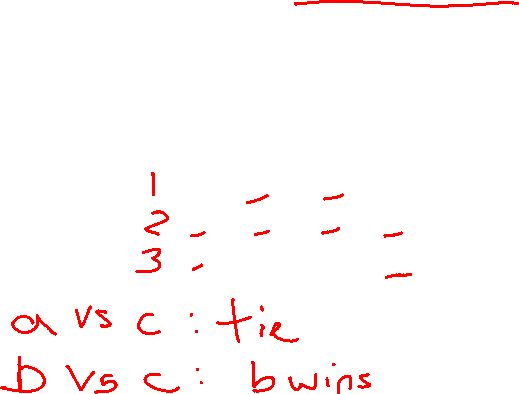 1 - -
2 - - - -
3 - -
a vs c : tie
b vs c : b wins